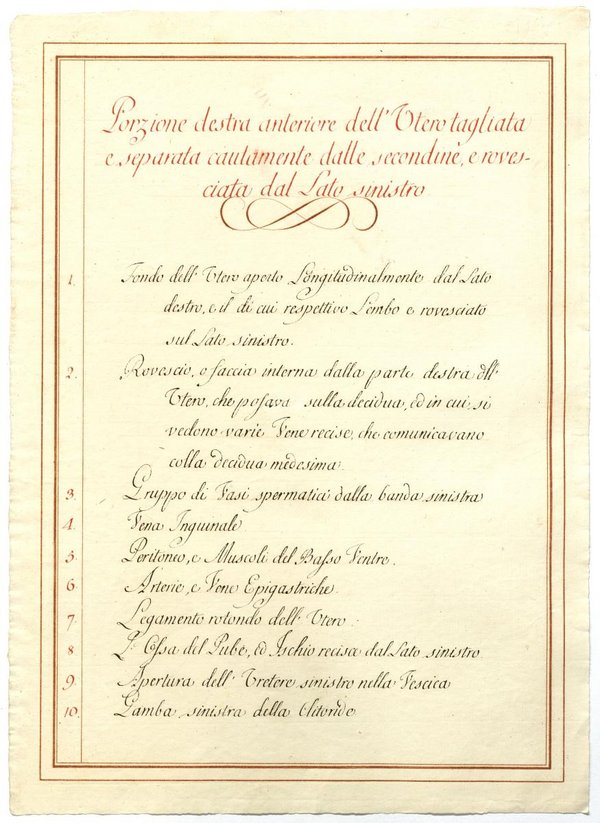 Porzione destra anteriore dell' Utero tagliata
e separata cautamente dalle secondine, e roves-
ciata dal Lato sinistro
1. Fondo dell' Utero aperto Longitudinalmente dal Lato
destro, e il di cui respettivo Lembo e rovesciato
sul Lato sinistro.
2. Rovescio, o faccia interna dalla parte destra dll'
Utero, che posava sulla decidua, ed in cui si
vedono varie Vene recise, che comunicavano
colla decidua medesima.
3. Gruppo di Vasi spermatici dalla banda sinistra
4. Vena Inguinale
5. Peritoneo, e Muscoli del Basso Ventre.
6. Arterie, e Vene Epigastriche.
7. Legamento rotondo dell' Utero.
8. L' Ossa del Pube, ed Ischio recisa dal Lato sinistro
9. Apertura dell' Uretere sinistro nella Vescica
10. Gamba sinistra della Clitoride